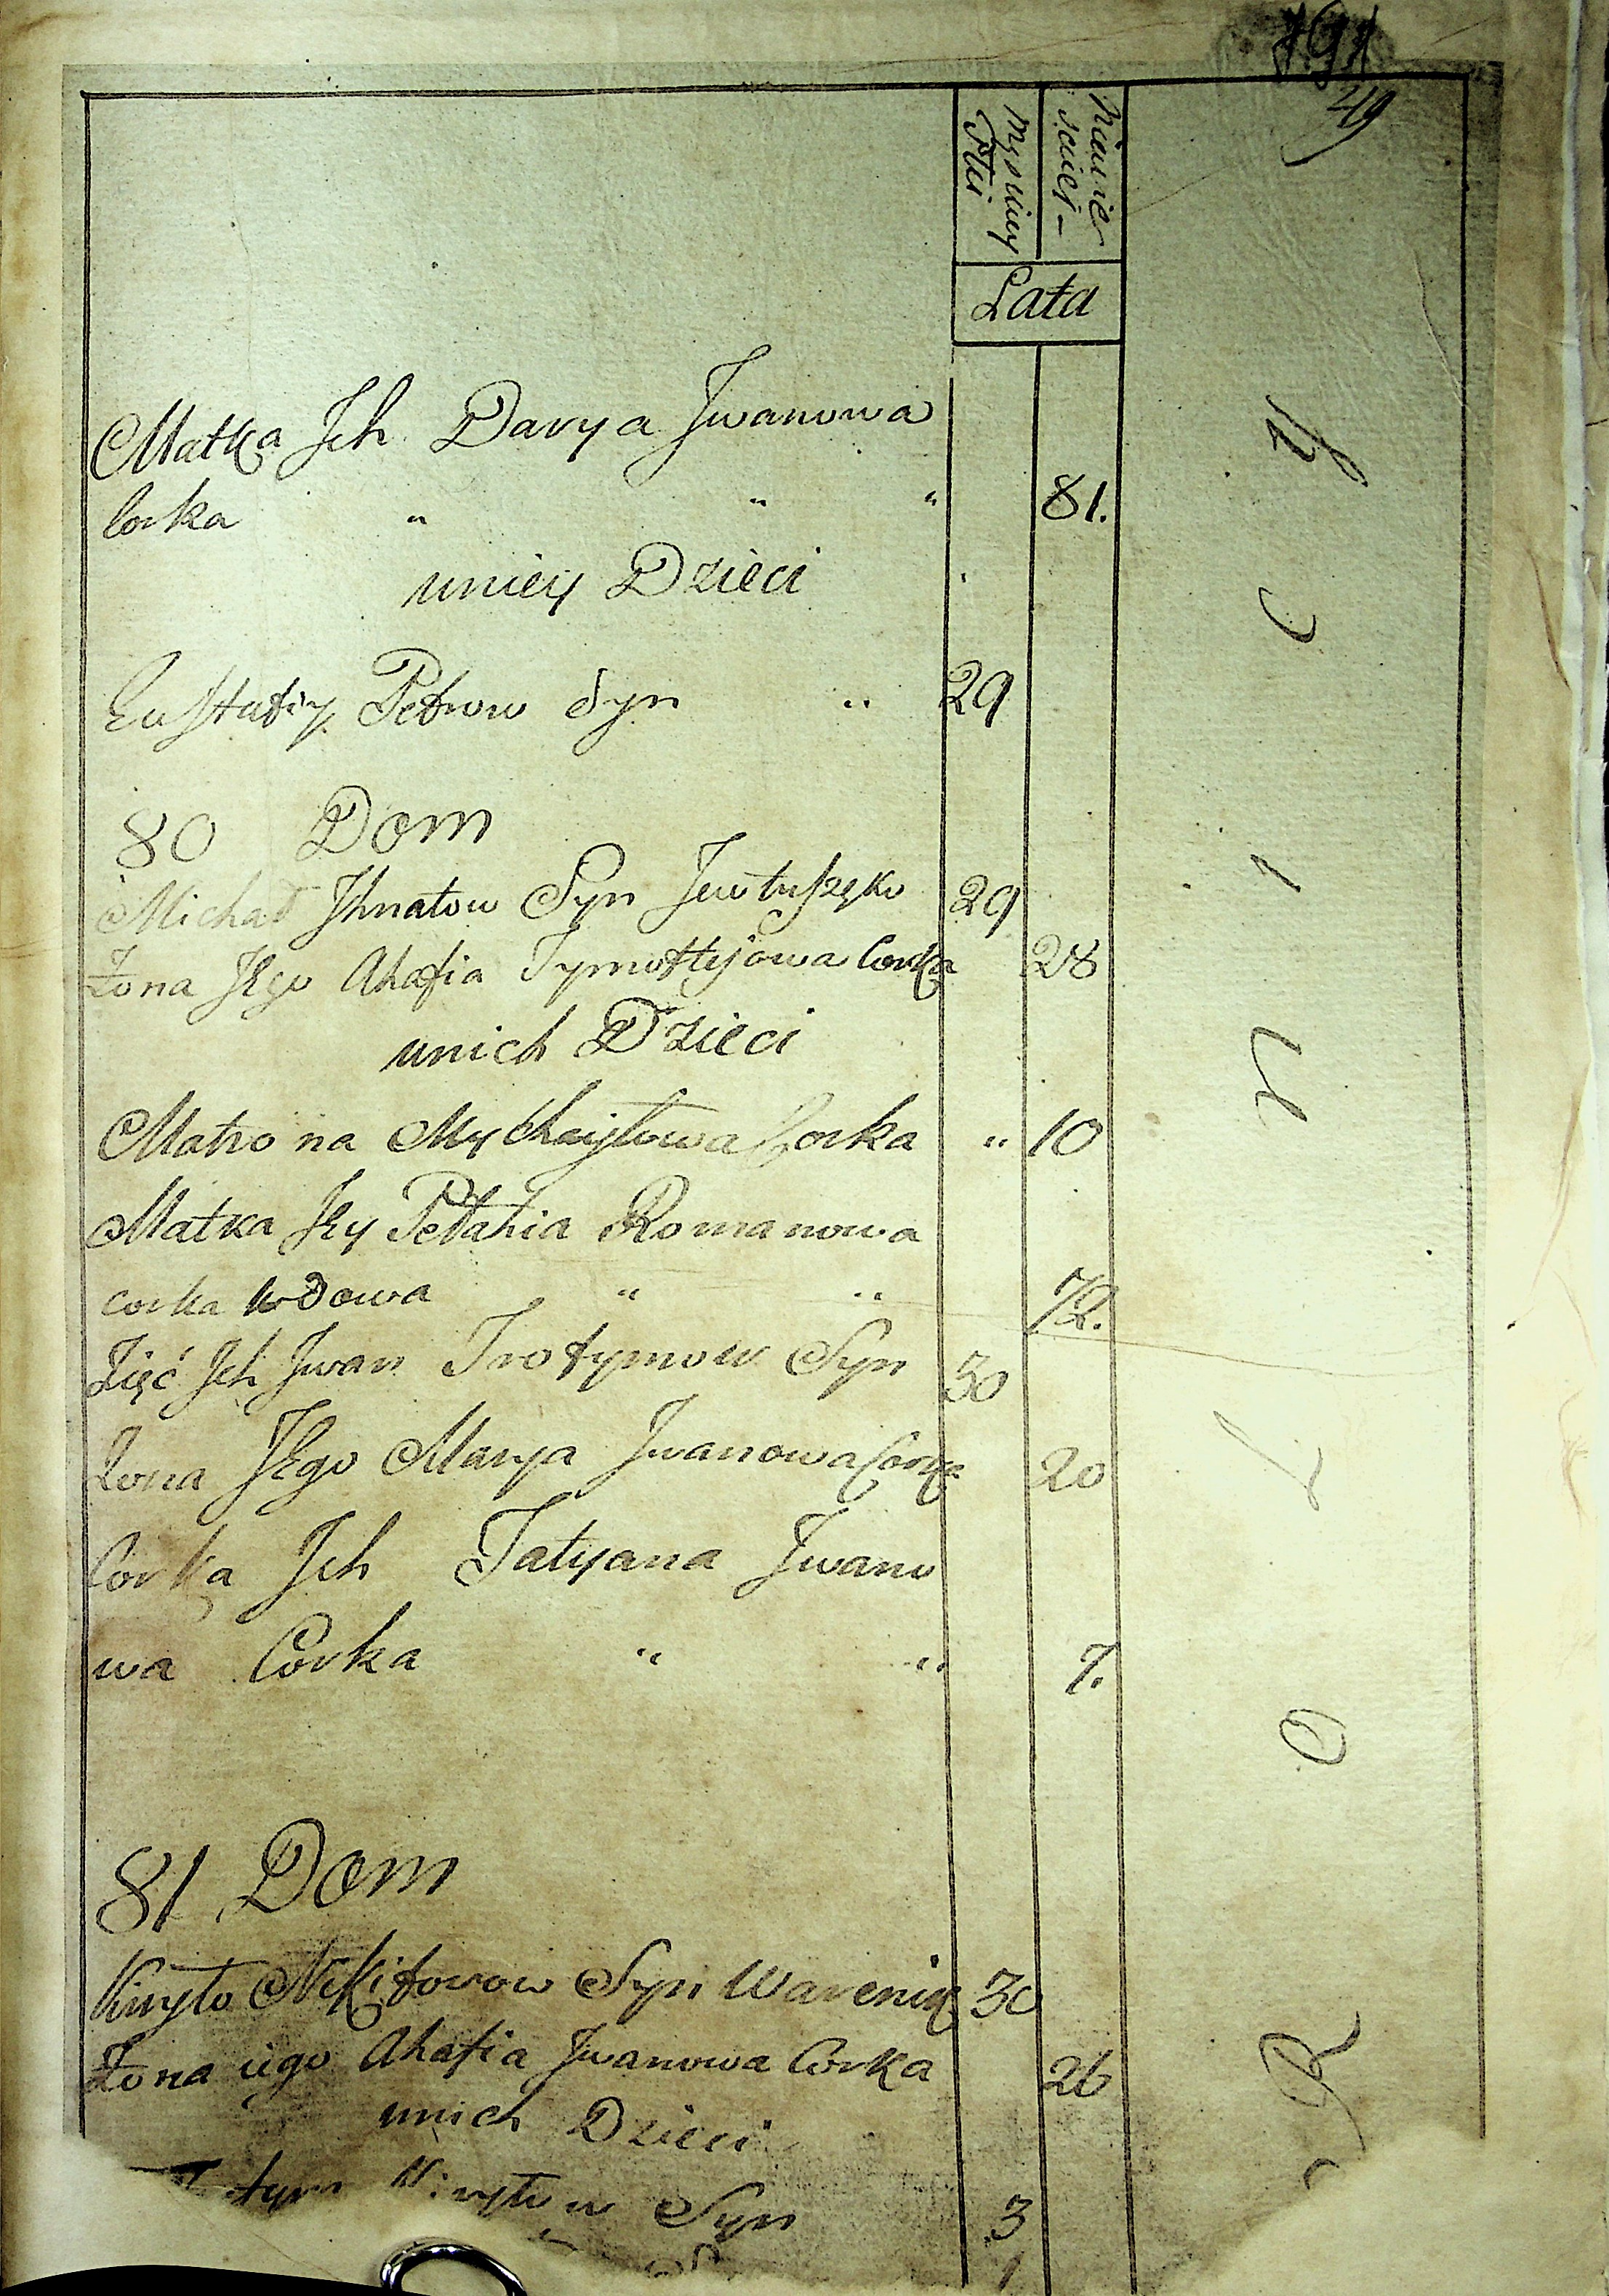 191
49
Męskiey Płci
Niewieściey
Lata
Matka Jch Darya Jwanowa
Corka " " " 81.
uniey Dzieci
Eustafiy Petrow Syn " 29
80 Dom
Michał Jhnatow Syn Jewtuszęko 29
Żona Jego Ahafia Tymoftejowa Corka 28
unich Dzieci
Matrona Mychayłowa Corka " 10
Matka Jey Pełahia Romanowa
corka wdowa " " 72.
Zięć Jch Jwan Trofymow Syn 30
Żona Jego Marya Jwanowa Corka 20
Corka Jch Tatyana Jwano
wa Corka " " 7.
81 Dom
Kiryło Nekiforow Syn Warenik 30
Żona iego Ahafia Jwanowa Corka 26
unich Dzieci
Kiryłow Syn 3
1
R O L N I C Y